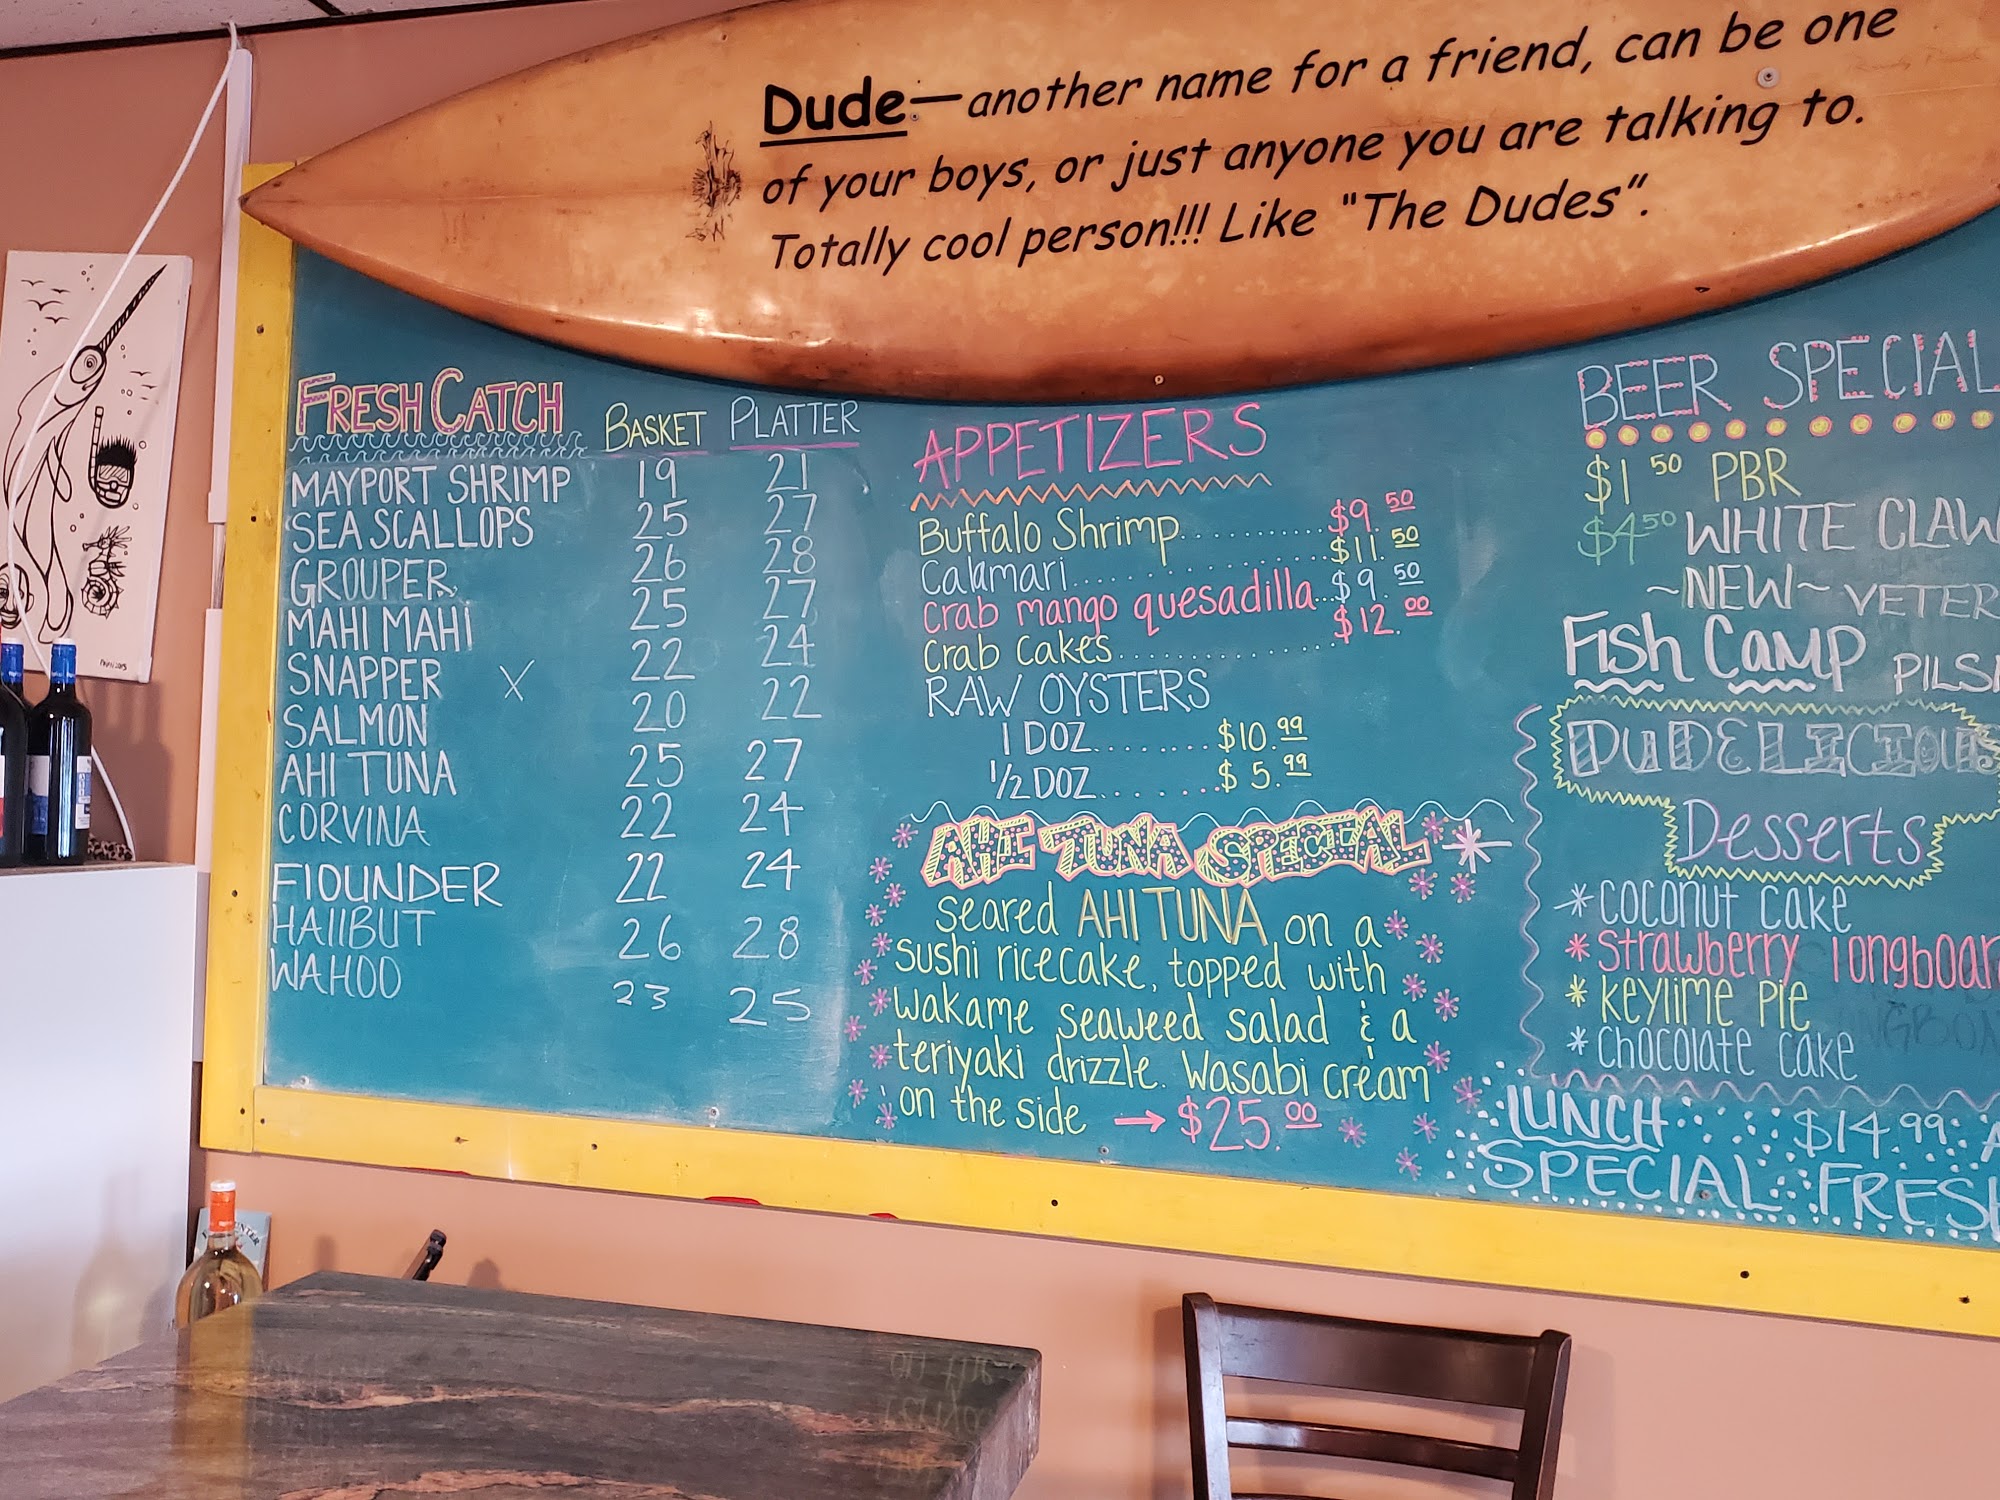 Dude—another name for a friend, can be one
of your boys, or just anyone you are talking to.
Totally cool person!!! Like "The Dudes".
FRESH CATCH BASKET PLATTER
MAYPORT SHRIMP 19 21
SEA SCALLOPS 25 27
GROUPER 26 28
MAHI MAHI 25 27
SNAPPER X 22 24
SALMON 20 22
AHI TUNA 25 27
CORVINA 22 24
FlOUNDER 22 24
HAlIBUT 26 28
WAHOO 23 25
APPETIZERS
Buffalo Shrimp.......... $9.50
Calamari.............. $11.50
Crab mango quesadilla... $9.50
Crab Cakes.............. $12.00
RAW OYSTERS
1 DOZ........ $10.99
1/2 DOZ........ $5.99
AHI TUNA SPECIAL
seared AHI TUNA on a
sushi ricecake, topped with
wakame seaweed salad & a
teriyaki drizzle. Wasabi cream
on the side → $25.00
BEER SPECIAL
$1.50 PBR
$4.50 WHITE CLAW
~NEW~ VETER
FISh CAMP PILS
DUDELICIOUS
Desserts
* COCONUT CAKE
* Strawberry longboar
* KEYlIME PIE
* Chocolate cake
LUNCH $14.99
SPECIAL FRES